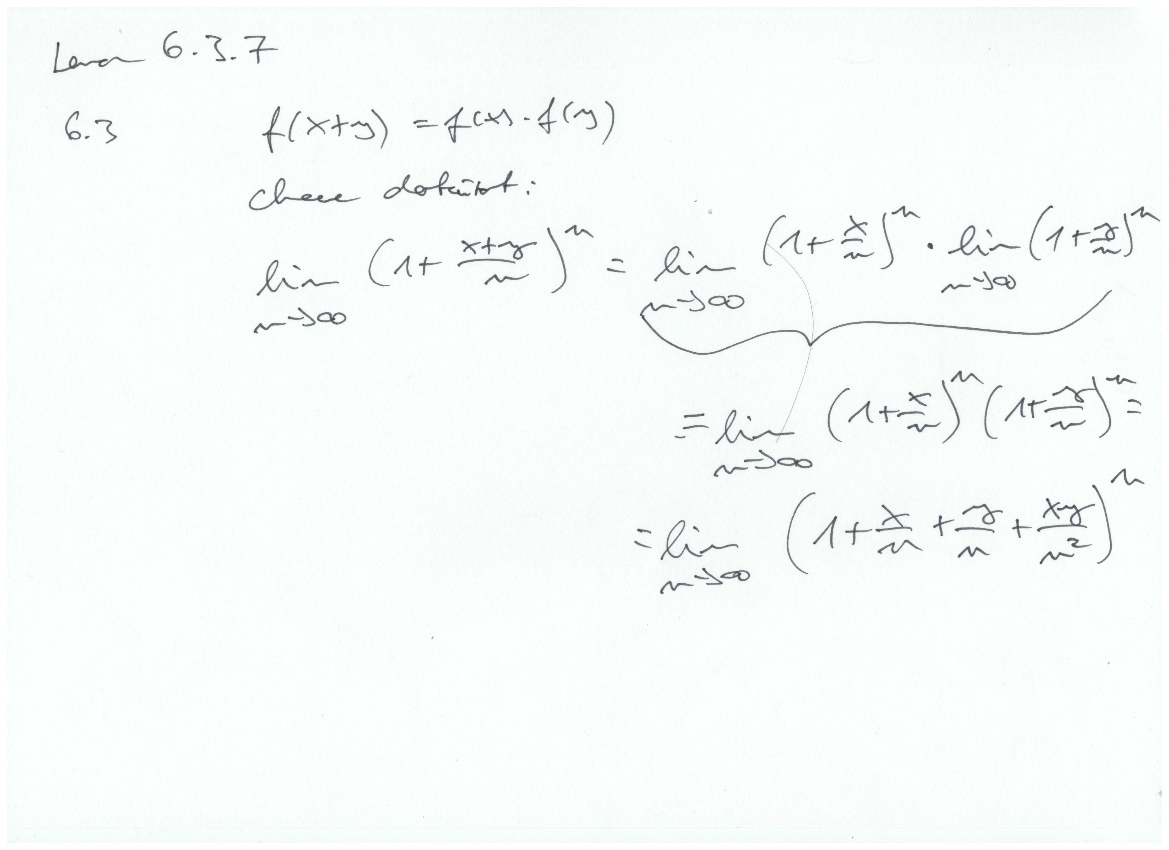 Lema 6.3.7
6.3 f(x+y) = f(x) · f(y)
chcu dokázat:
lim_{n→∞} (1 + \frac{x+y}{n})^n = lim_{n→∞} (1 + \frac{x}{n})^n · lim_{n→∞} (1 + \frac{y}{n})^n
= lim_{n→∞} (1 + \frac{x}{n})^n (1 + \frac{y}{n})^n =
= lim_{n→∞} (1 + \frac{x}{n} + \frac{y}{n} + \frac{xy}{n^2})^n